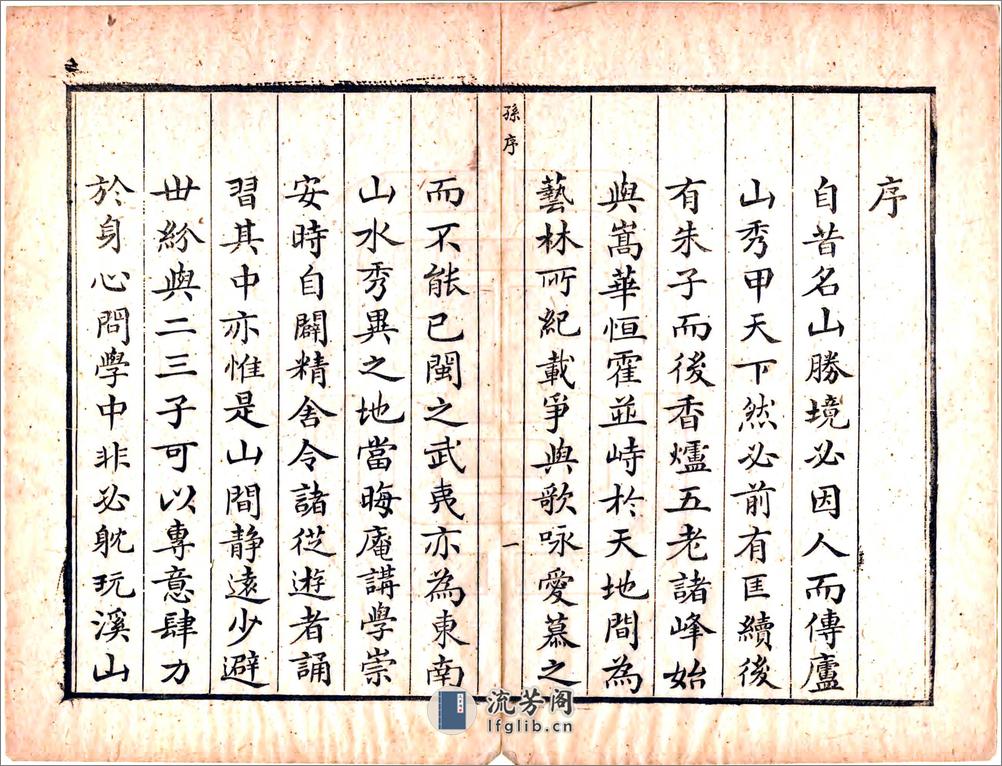 序
自昔名山勝境必因人而傳廬
山秀甲天下然必前有匡續後
有朱子而後香爐五老諸峰始
與嵩華恒霍並峙於天地間為
藝林所紀載爭與歌咏愛慕之
孫序
一
而不能已閩之武夷亦為東南
山水秀異之地當晦庵講學崇
安時自闢精舍令諸從遊者誦
習其中亦惟是山間靜遠少避
世紛與二三子可以專意肆力
於身心問學中非必躭玩溪山
流芳阁
lfglib.cn